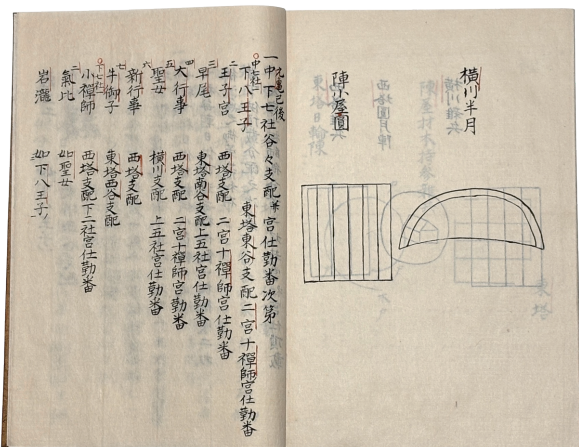 横川半月
陣小屋圖
元亀已後
一中下七社谷々支配并宮仕勤番次第
中七社一
下八王子 東塔東谷支配二宮十禪師宮仕勤番
二
王子宮 西塔支配 二宮十禪師宮仕勤番
三
早尾 東塔南谷支配上五社宮仕勤番
四
大行事 西塔支配 二宮十禪師宮仕勤番
五
聖女 横川支配 上五社宮仕勤番
六
新行事 西塔支配
七
牛御子 東塔西谷支配
下七社一
小禪師 西塔支配下二社宮仕勤番
二
氣比 如聖女
岩瀧 如下八王子